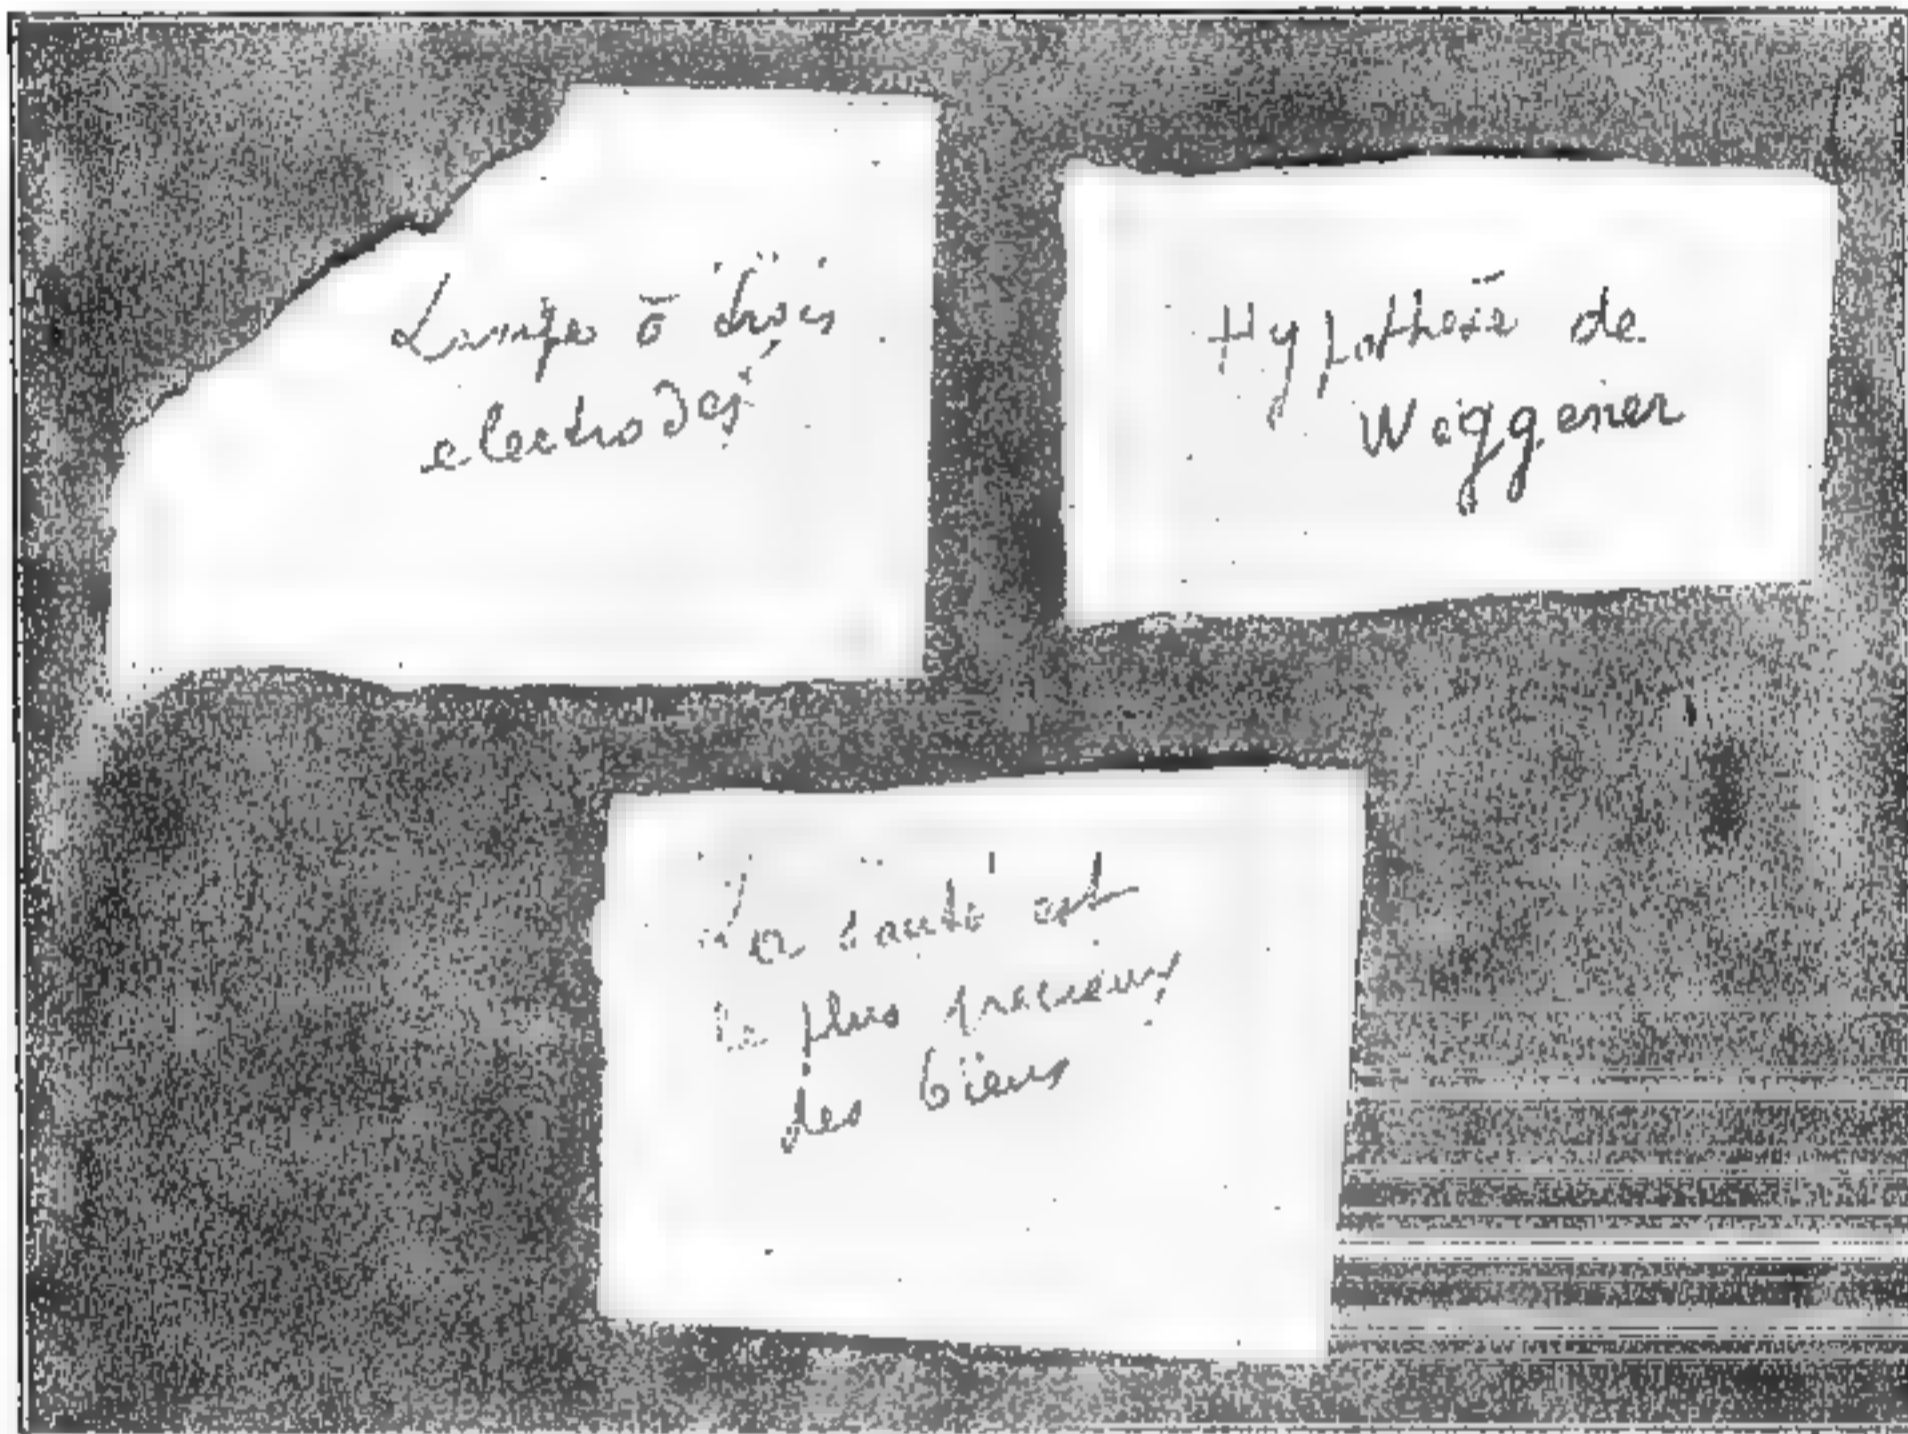 Lampe à trois
electrodes
Hypothèse de
Weggener
La santé est
le plus precieux
des biens